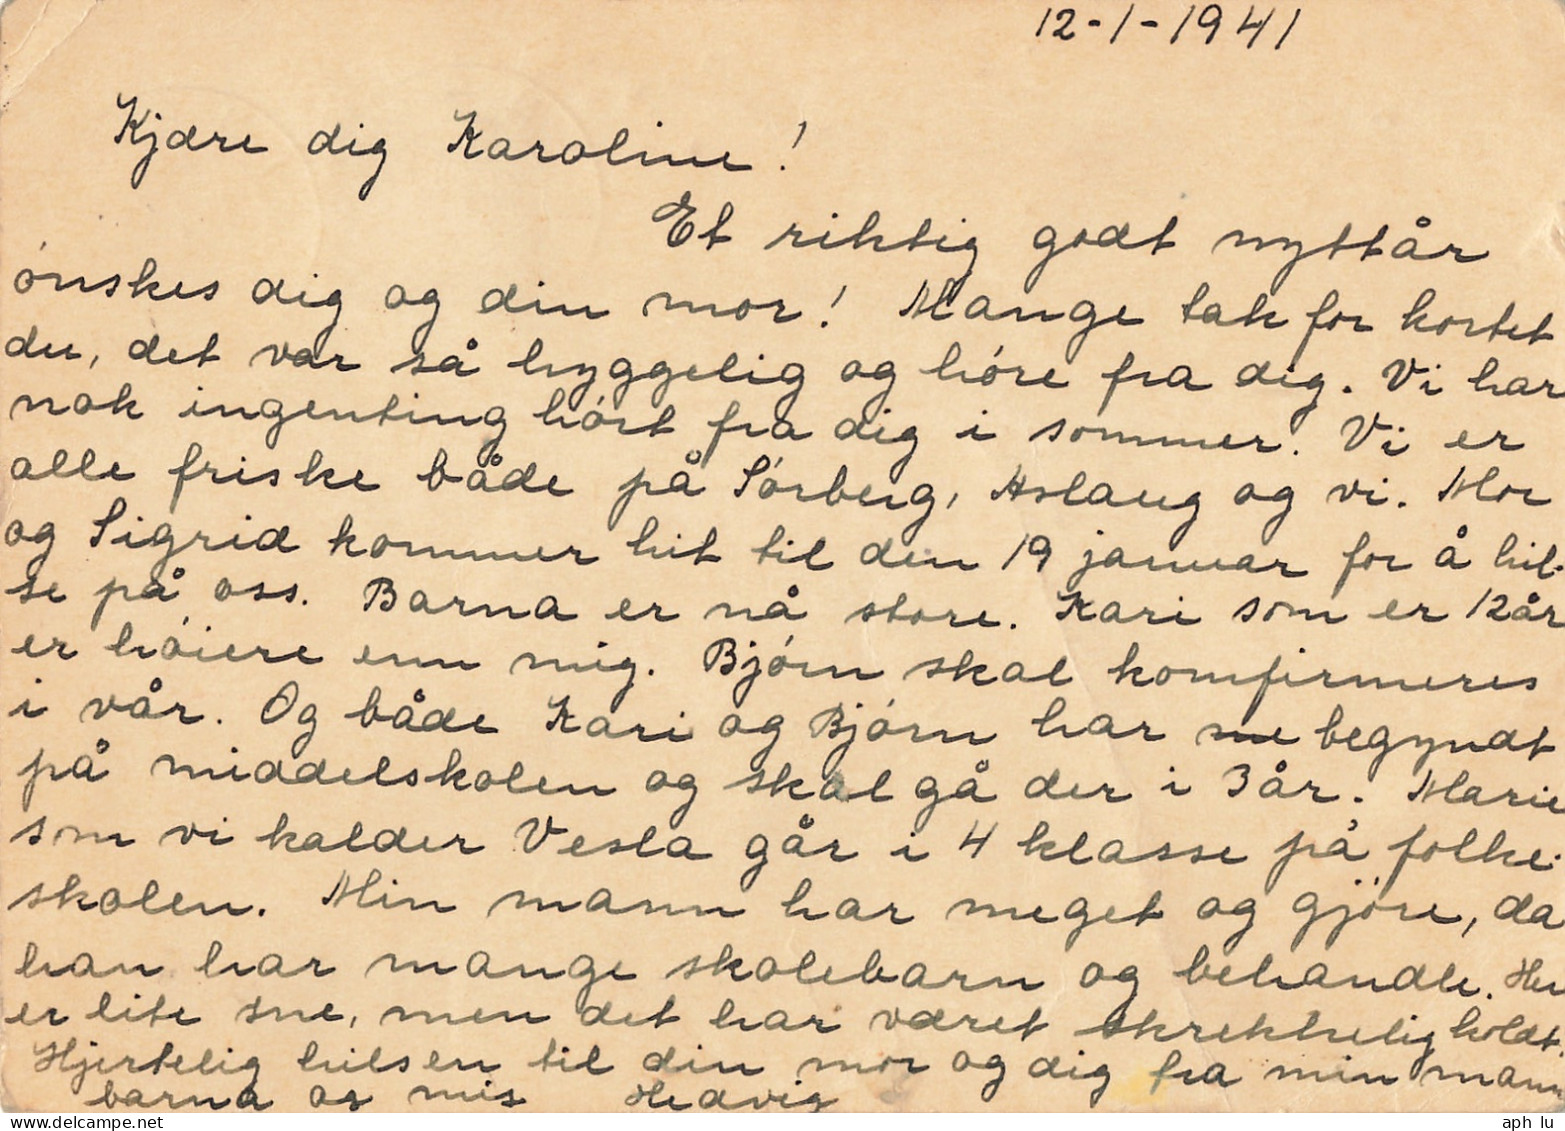 12-1-1941
Kjære dig Karoline!
Et riktig godt nyttår
ónskes dig og din mor! Mange tak for kortet
du, det var så hyggelig og hóre fra dig. Vi har
nok ingenting hórt fra dig i sommer. Vi er
alle friske både på Sórberg, Aslaug og vi. Mor
og Sigrid kommer hit til den 19 januar for å hil-
se på oss. Barna er nå store. Kari som er 12år
er hóiere enn mig. Bjórn skal komfirmeres
i vår. Og både Kari og Bjórn har begyndt
på middelskolen og skal gå der i 3år. Marie
som vi kalder Vesla går i 4 klasse på folke-
skolen. Min mann har meget og gjöre, da
han har mange skolebarn og behandle. Her
er lite sne, men det har været skrekkelig koldt.
Hjertelig hilsen til din mor og dig fra min mann
barna og mig Hedvig
aph lu